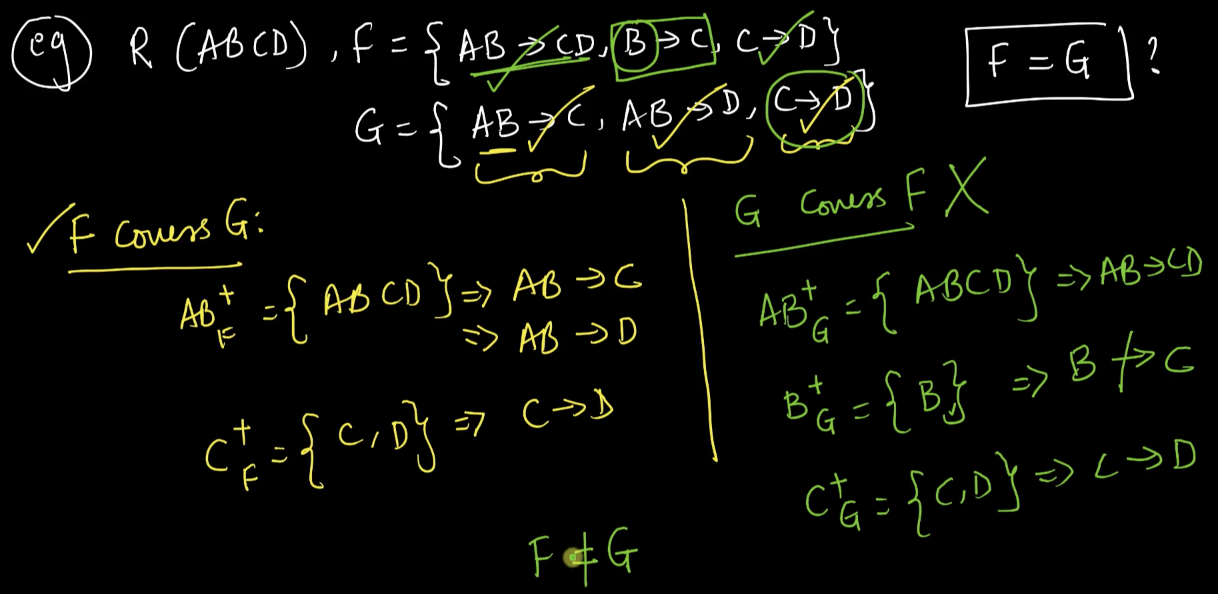 eg R (ABCD), F = { AB → CD, B → C, C → D}
F = G ?
G = { AB → C, AB → D, C → D}
✓ F Covers G:
AB⁺_F = { ABCD} => AB → C
=> AB → D
C⁺_F = { C, D} => C → D
G Covers F X
AB⁺_G = { ABCD} => AB → CD
B⁺_G = { B} => B ↛ C
C⁺_G = { C, D} => C → D
F ≠ G